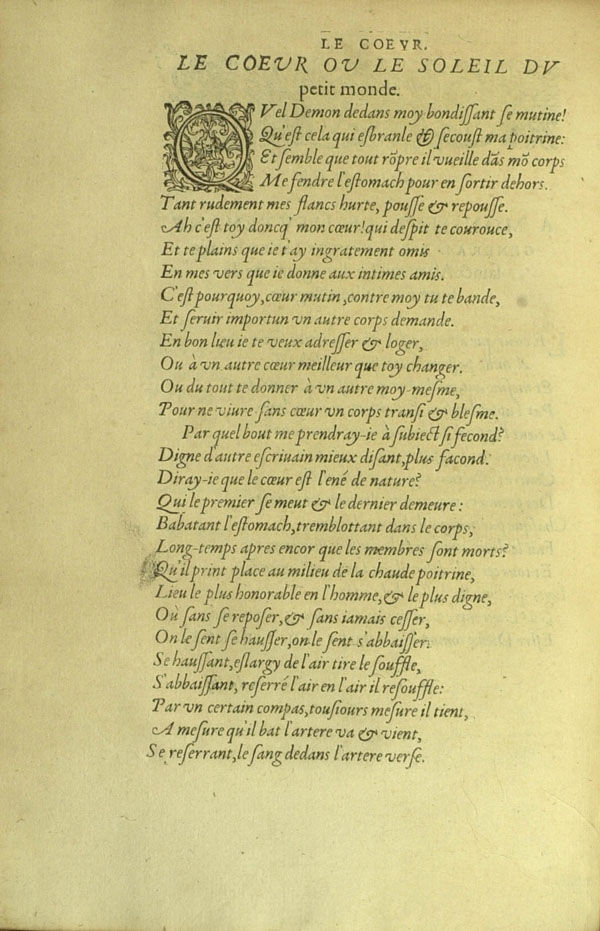 LE COEVR.
LE COEVR OV LE SOLEIL DV
petit monde.
QVel Demon dedans moy bondiſſant ſe mutine!
Qu'eſt cela qui eſbranle & ſecouſt ma poitrine:
Et ſemble que tout rõpre il vueille dãs mõ corps
Me fendre l'eſtomach pour en ſortir dehors.
Tant rudement mes flancs hurte, pouſſe & repouſſe.
Ah c'eſt toy doncq' mon cœur! qui deſpit te courouce,
Et te plains que ie t'ay ingratement omis
En mes vers que ie donne aux intimes amis.
C'eſt pourquoy, cœur mutin, contre moy tu te bande,
Et ſeruir importun vn autre corps demande.
En bon lieu ie te veux adreſſer & loger,
Ou à vn autre cœur meilleur que toy changer.
Ou du tout te donner à vn autre moy-meſme,
Pour ne viure ſans cœur vn corps tranſi & bleſme.
Par quel bout me prendray-ie à ſubiect ſi fecond?
Digne d'autre eſcriuain mieux diſant, plus facond.
Diray-ie que le cœur eſt l'ené de nature?
Qui le premier ſe meut & le dernier demeure:
Babatant l'eſtomach, tremblottant dans le corps,
Long-temps apres encor que les membres ſont morts?
Qu'il print place au milieu de la chaude poitrine,
Lieu le plus honorable en l'homme, & le plus digne,
Où ſans ſe repoſer, & ſans iamais ceſſer,
On le ſent ſe hauſſer, on le ſent s'abbaiſſer.
Se hauſſant, eſlargy de l'air tire le ſouffle,
S'abbaiſſant, reſerré l'air en l'air il reſouffle:
Par vn certain compas, touſiours meſure il tient,
A meſure qu'il bat l'artere va & vient,
Se reſerrant, le ſang dedans l'artere verſe.